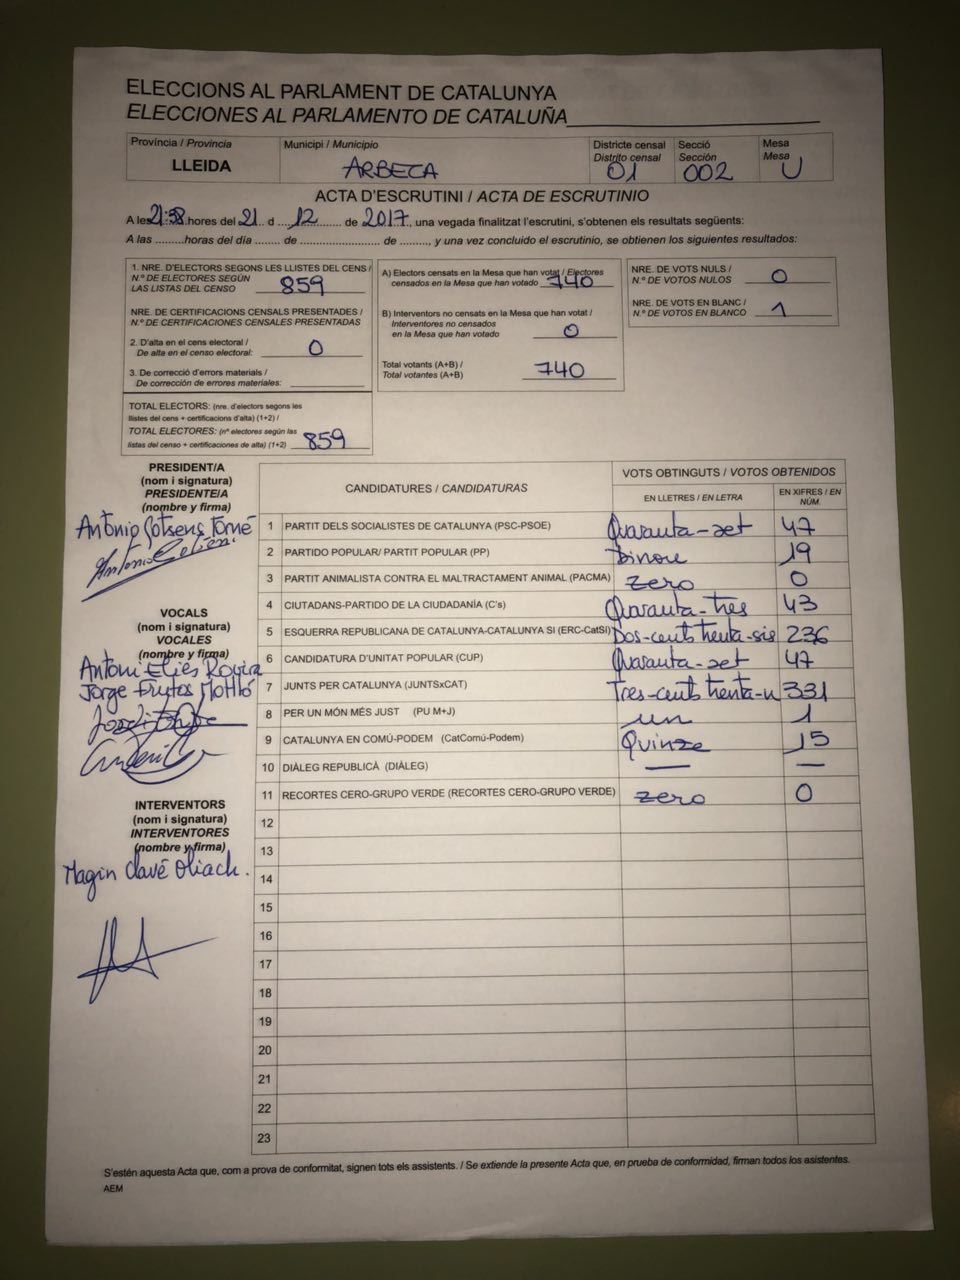 ELECCIONS AL PARLAMENT DE CATALUNYA
ELECCIONES AL PARLAMENTO DE CATALUÑA
Província / Provincia
LLEIDA
Municipi / Municipio
ARBECA
Districte censal
Distrito censal
01
Secció
Sección
002
Mesa
Mesa
U
ACTA D'ESCRUTINI / ACTA DE ESCRUTINIO
A les 21:38 hores del 21 d 12 de 2017, una vegada finalitzat l'escrutini, s'obtenen els resultats següents:
A las .........horas del día ........ de ........................ de ........., y una vez concluido el escrutinio, se obtienen los siguientes resultados:
1. NRE. D'ELECTORS SEGONS LES LLISTES DEL CENS /
N.º DE ELECTORES SEGÚN
LAS LISTAS DEL CENSO 859
NRE. DE CERTIFICACIONS CENSALS PRESENTADES /
N.º DE CERTIFICACIONES CENSALES PRESENTADAS
2. D'alta en el cens electoral /
De alta en el censo electoral: 0
3. De correcció d'errors materials /
De corrección de errores materiales:
TOTAL ELECTORS: (nre. d'electors segons les
llistes del cens + certificacions d'alta) (1+2) /
TOTAL ELECTORES: (nº electores según las
listas del censo + certificaciones de alta) (1+2) 859
A) Electors censats en la Mesa que han votat / Electores
censados en la Mesa que han votado 740
B) Interventors no censats en la Mesa que han votat /
Interventores no censados
en la Mesa que han votado 0
Total votants (A+B) /
Total votantes (A+B) 740
NRE. DE VOTS NULS /
N.º DE VOTOS NULOS 0
NRE. DE VOTS EN BLANC /
N.º DE VOTOS EN BLANCO 1
PRESIDENT/A
(nom i signatura)
PRESIDENTE/A
(nombre y firma)
Antonio Cotsens Tomé
VOCALS
(nom i signatura)
VOCALES
(nombre y firma)
Antoni Elies Rovira
Jorge Frutos
INTERVENTORS
(nom i signatura)
INTERVENTORES
(nombre y firma)
Magin Clavé Oliach.
CANDIDATURES / CANDIDATURAS
VOTS OBTINGUTS / VOTOS OBTENIDOS
EN LLETRES / EN LETRA
EN XIFRES / EN NÚM.
1 PARTIT DELS SOCIALISTES DE CATALUNYA (PSC-PSOE) Quaranta-set 47
2 PARTIDO POPULAR/ PARTIT POPULAR (PP) Dinou 19
3 PARTIT ANIMALISTA CONTRA EL MALTRACTAMENT ANIMAL (PACMA) zero 0
4 CIUTADANS-PARTIDO DE LA CIUDADANÍA (C's) Quaranta-tres 43
5 ESQUERRA REPUBLICANA DE CATALUNYA-CATALUNYA SI (ERC-CatSí) Dos-cents trenta-sis 236
6 CANDIDATURA D'UNITAT POPULAR (CUP) Quaranta-set 47
7 JUNTS PER CATALUNYA (JUNTSxCAT) Tres-cents trenta-u 331
8 PER UN MÓN MÉS JUST (PU M+J) un 1
9 CATALUNYA EN COMÚ-PODEM (CatComú-Podem) Quinze 15
10 DIÀLEG REPUBLICÀ (DIÀLEG) — —
11 RECORTES CERO-GRUPO VERDE (RECORTES CERO-GRUPO VERDE) zero 0
12
13
14
15
16
17
18
19
20
21
22
23
S'estén aquesta Acta que, com a prova de conformitat, signen tots els assistents. / Se extiende la presente Acta que, en prueba de conformidad, firman todos los asistentes.
AEM